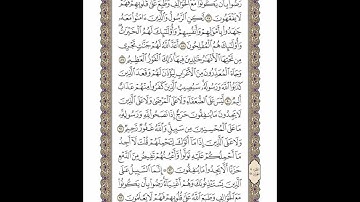 رَضُوا۟ بِأَن يَكُونُوا۟ مَعَ ٱلْخَوَالِفِ وَطُبِعَ عَلَىٰ قُلُوبِهِمْ فَهُمْ
لَا يَفْقَهُونَ ٨٧ لَٰكِنِ ٱلرَّسُولُ وَٱلَّذِينَ ءَامَنُوا۟ مَعَهُۥ
جَٰهَدُوا۟ بِأَمْوَٰلِهِمْ وَأَنفُسِهِمْ وَأُو۟لَٰٓئِكَ لَهُمُ ٱلْخَيْرَٰتُ
وَأُو۟لَٰٓئِكَ هُمُ ٱلْمُفْلِحُونَ ٨٨ أَعَدَّ ٱللَّهُ لَهُمْ جَنَّٰتٍ تَجْرِى
مِن تَحْتِهَا ٱلْأَنْهَٰرُ خَٰلِدِينَ فِيهَا ذَٰلِكَ ٱلْفَوْزُ ٱلْعَظِيمُ ٨٩
وَجَآءَ ٱلْمُعَذِّرُونَ مِنَ ٱلْأَعْرَابِ لِيُؤْذَنَ لَهُمْ وَقَعَدَ ٱلَّذِينَ
كَذَبُوا۟ ٱللَّهَ وَرَسُولَهُۥ سَيُصِيبُ ٱلَّذِينَ كَفَرُوا۟ مِنْهُمْ عَذَابٌ
أَلِيمٌ ٩٠ لَّيْسَ عَلَى ٱلضُّعَفَآءِ وَلَا عَلَى ٱلْمَرْضَىٰ وَلَا عَلَى ٱلَّذِينَ
لَا يَجِدُونَ مَا يُنفِقُونَ حَرَجٌ إِذَا نَصَحُوا۟ لِلَّهِ وَرَسُولِهِۦ
مَا عَلَى ٱلْمُحْسِنِينَ مِن سَبِيلٍ وَٱللَّهُ غَفُورٌ رَّحِيمٌ ٩١
وَلَا عَلَى ٱلَّذِينَ إِذَا مَآ أَتَوْكَ لِتَحْمِلَهُمْ قُلْتَ لَآ أَجِدُ
مَآ أَحْمِلُكُمْ عَلَيْهِ تَوَلَّوا۟ وَّأَعْيُنُهُمْ تَفِيضُ مِنَ ٱلدَّمْعِ
حَزَنًا أَلَّا يَجِدُوا۟ مَا يُنفِقُونَ ٩٢ إِنَّمَا ٱلسَّبِيلُ عَلَى
ٱلَّذِينَ يَسْتَـْٔذِنُونَكَ وَهُمْ أَغْنِيَآءُ رَضُوا۟ بِأَن يَكُونُوا۟
مَعَ ٱلْخَوَالِفِ وَطَبَعَ ٱللَّهُ عَلَىٰ قُلُوبِهِمْ فَهُمْ لَا يَعْلَمُونَ ٩٣